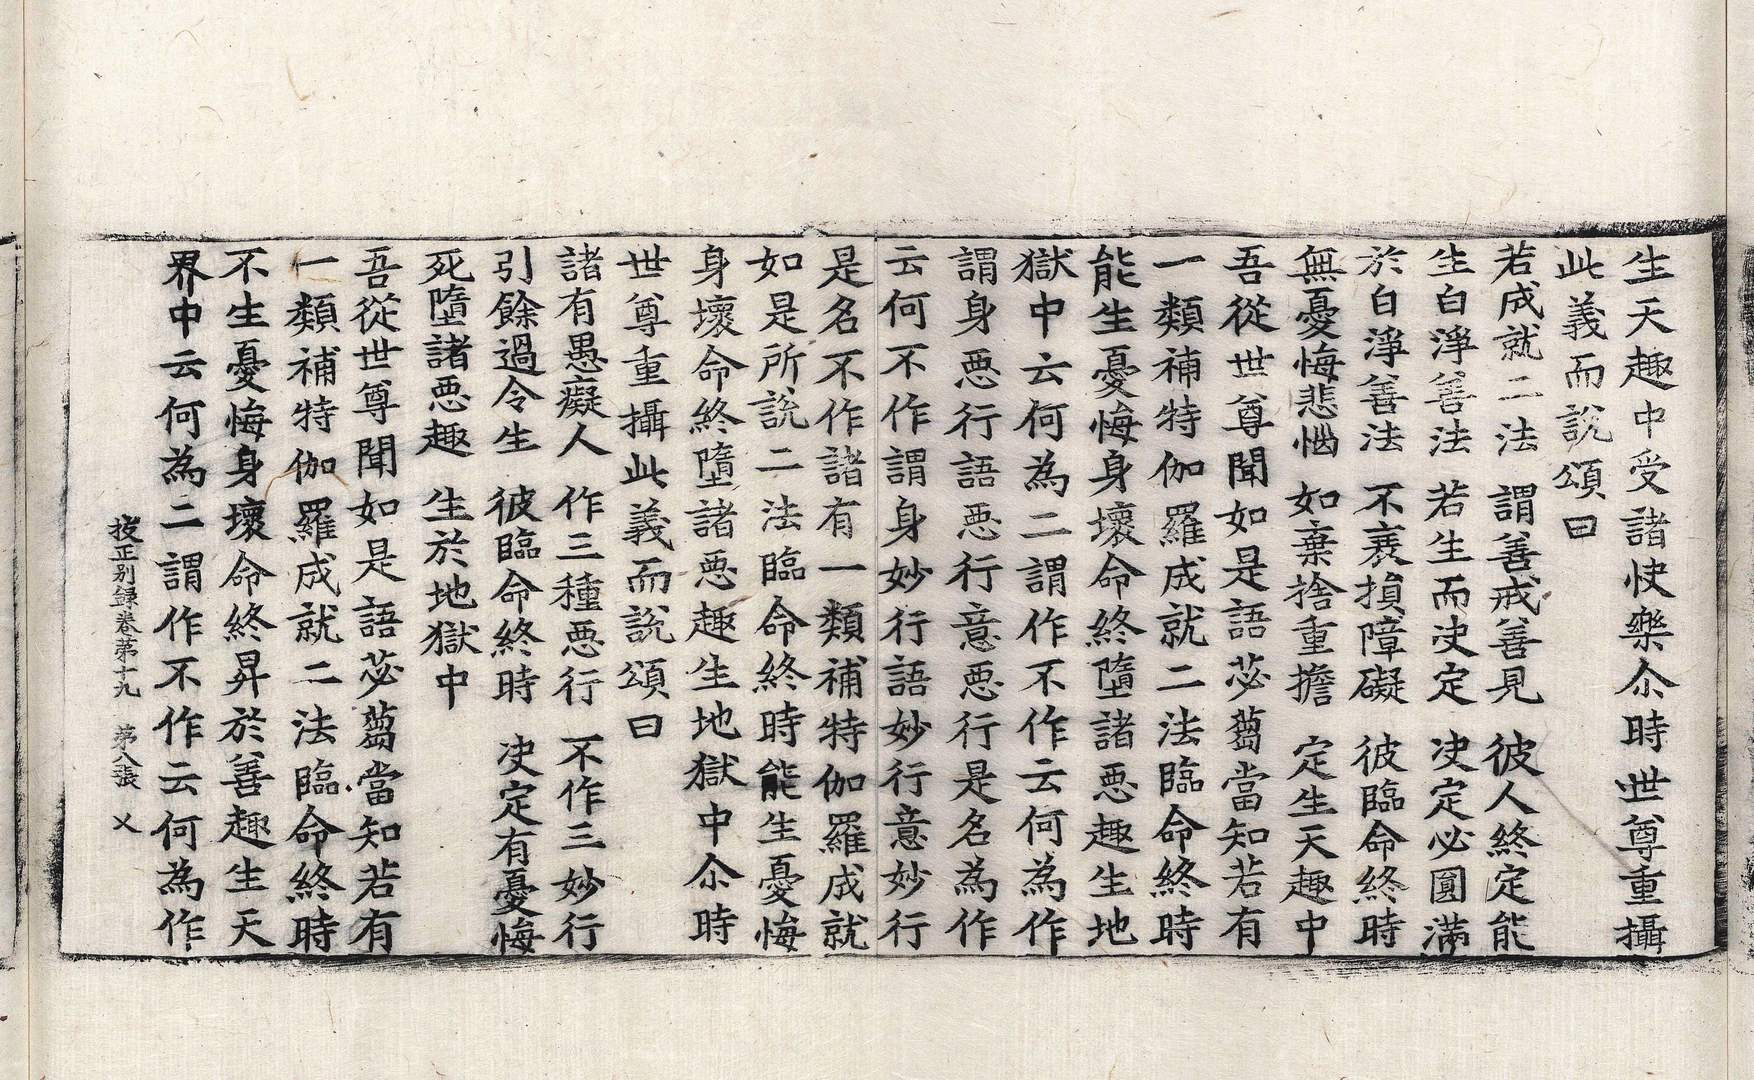 生天趣中受諸快樂尒時世尊重攝
此義而說頌曰
若成就二法　謂善戒善見　彼人終定能
生白淨善法　若生而決定　決定必圓滿
於白淨善法　不衰損障礙　彼臨命終時
無憂悔悲惱　如棄捨重擔　定生天趣中
吾從世尊聞如是語苾蒭當知若有
一類補特伽羅成就二法臨命終時
能生憂悔身壞命終墮諸惡趣生地
獄中云何為二謂作不作云何為作
謂身惡行語惡行意惡行是名為作
云何不作謂身妙行語妙行意妙行
是名不作諸有一類補特伽羅成就
如是所說二法臨命終時能生憂悔
身壞命終墮諸惡趣生地獄中尒時
世尊重攝此義而說頌曰
諸有愚癡人　作三種惡行　不作三妙行
引餘過令生　彼臨命終時　決定有憂悔
死墮諸惡趣　生於地獄中
吾從世尊聞如是語苾蒭當知若有
一類補特伽羅成就二法臨命終時
不生憂悔身壞命終昇於善趣生天
界中云何為二謂作不作云何為作
挍正別録卷第十九　第八張　乂